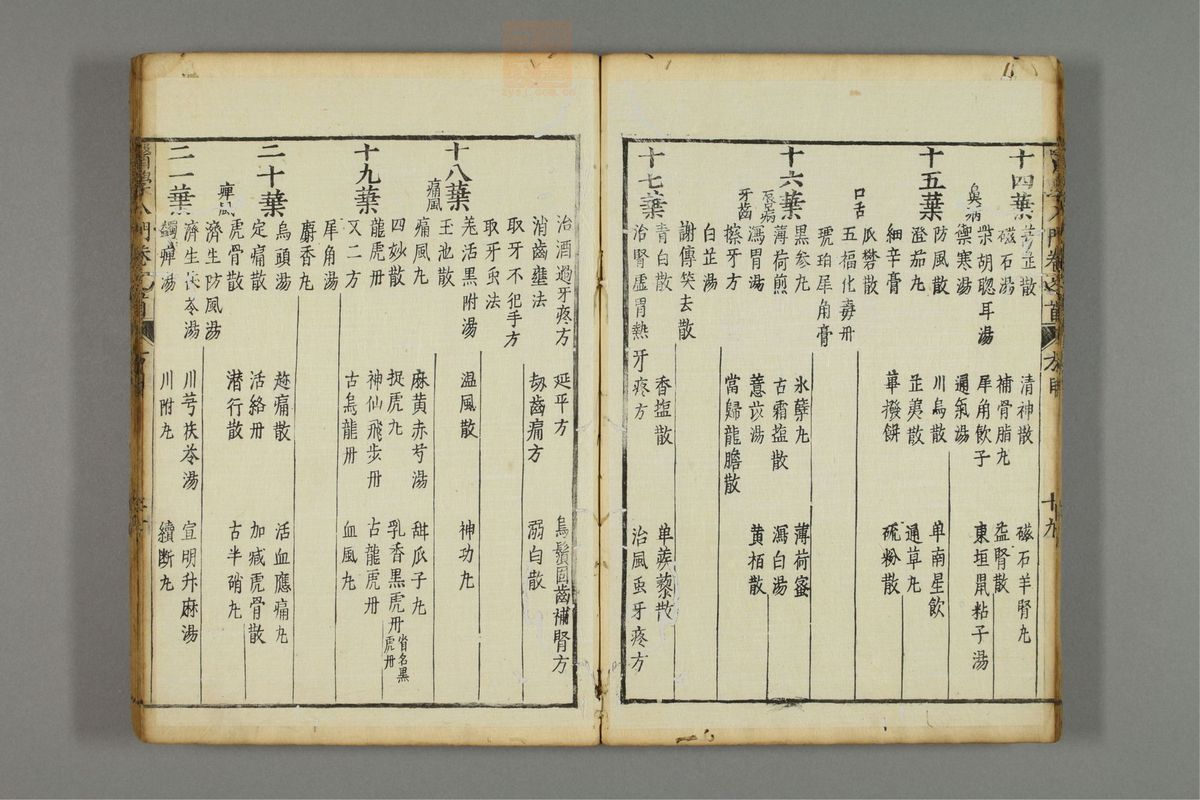 十四葉
芎芷散 清神散 磁石羊腎丸
磁石湯 補骨脂丸 益腎散
鼻病
柴胡聰耳湯 犀角飲子 東垣鼠粘子湯
禦寒湯 通氣湯
十五葉
防風散 川烏散 单南星飲
澄茄丸 芷荑散 通草丸
細辛膏 蓽撥餅 硫粉散
瓜礬散
口舌
五福化毒丹
琥珀犀角膏
十六葉
黑参丸 氷蘖丸 薄荷蜜
薄荷煎 古霜塩散 瀉白湯
唇病
瀉胃湯 薏苡湯 黄栢散
牙齒
擦牙方 當歸龍膽散
白芷湯
謝傳笑去散
十七葉
青白散 香塩散 单蒺藜散
治腎虚胃熱牙疼方 治風虫牙疼方
治酒過牙疼方 延平方 烏鬚固齒補腎方
消齒壅法 刼齒痛方 溺白散
取牙不犯手方
取牙虫法
十八葉
羗活黑附湯 温風散 神功丸
玉池散
痛風
痛風丸 麻黄赤芍湯 甜瓜子丸
四妙散 捉虎丸 乳香黑虎丹 省名黑虎丹
龍虎丹 神仙飛步丹 古龍虎丹
十九葉
又二方 古烏龍丹 血風丸
犀角湯
麝香丸
烏頭湯 趂痛散 活血應痛丸
二十葉
定痛散 活絡丹 加减虎骨散
虎骨散 潜行散 古半硝丸
痺風
濟生防風湯
濟生茯苓湯 川芎茯苓湯 宣明升麻湯
二一葉
蠲痺湯 川附丸 續斷丸